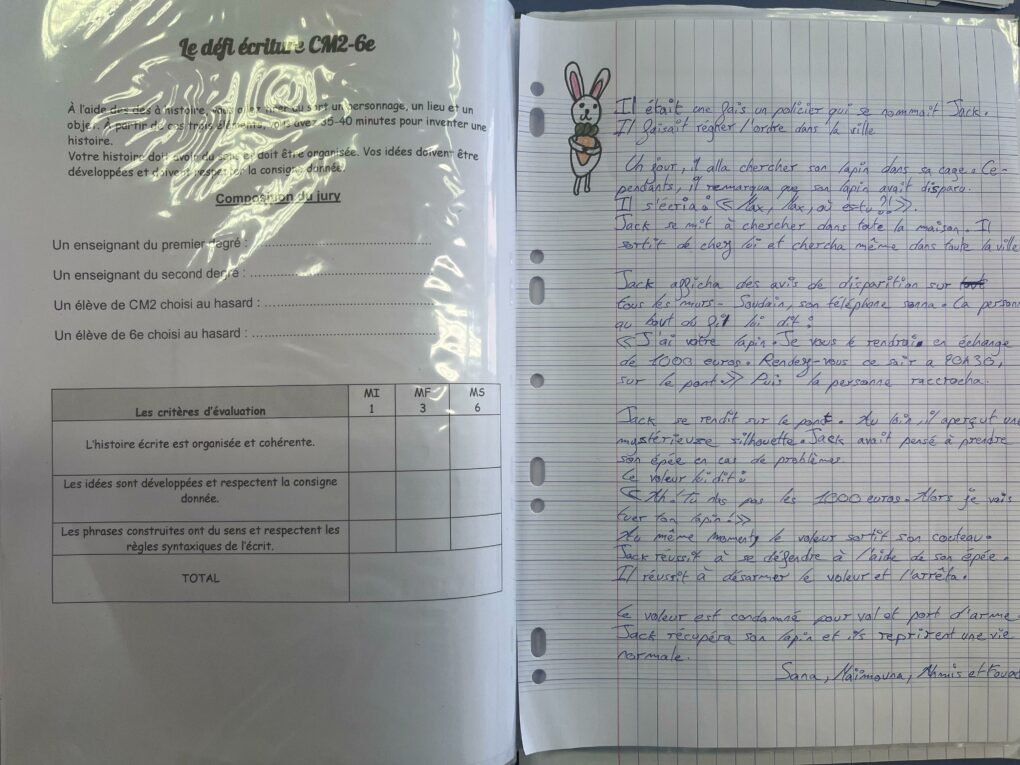 Le défi écriture CM2-6e
À l'aide des dés à histoire, vous allez tirer au sort un personnage, un lieu et un
objet. À partir de ces trois éléments, vous avez 35-40 minutes pour inventer une
histoire.
Votre histoire doit avoir du sens et doit être organisée. Vos idées doivent être
développées et doivent respecter la consigne donnée.
Composition du jury
Un enseignant du premier degré : ......................................................
Un enseignant du second degré : ......................................................
Un élève de CM2 choisi au hasard : ......................................................
Un élève de 6e choisi au hasard : ......................................................
Les critères d'évaluation MI 1 MF 3 MS 6
L'histoire écrite est organisée et cohérente.
Les idées sont développées et respectent la consigne
donnée.
Les phrases construites ont du sens et respectent les
règles syntaxiques de l'écrit.
TOTAL
Il était une fois un policier qui se nommait Jack.
Il faisait régner l'ordre dans la ville
Un jour, il alla chercher son lapin dans sa cage. Ce-
pendants, il remarqua que son lapin avait disparu.
Il s'écria : « Max, Max, où es tu ?! ».
Jack se mit à chercher dans toute la maison. Il
sortit de chez lui et chercha même dans toute la ville
Jack afficha des avis de disparition sur
tous les murs. Soudain, son téléphone sonna. La person
au bout du fil lui dit :
« J'ai votre lapin. Je vous le rendrai en échange
de 1000 euros. Rendez-vous ce soir a 20h30,
sur le pont » Puis la personne raccrocha.
Jack se rendit sur le pont. Au loin, il aperçut une
mystérieuse silhouette. Jack avait pensé à prendre
son épée en cas de problèmes.
Le voleur lui dit :
« Ah ! Tu n'as pas les 1000 euros. Alors je vais
tuer ton lapin ! »
Au même moment, le voleur sortit son couteau.
Jack réussit à se défendre à l'aide de son épée.
Il réussit à désarmer le voleur et l'arrêta.
Le voleur est condamné pour vol et port d'arme.
Jack récupéra son lapin et ils reprirent une vie
normale.
Sana, Maïmouna, et